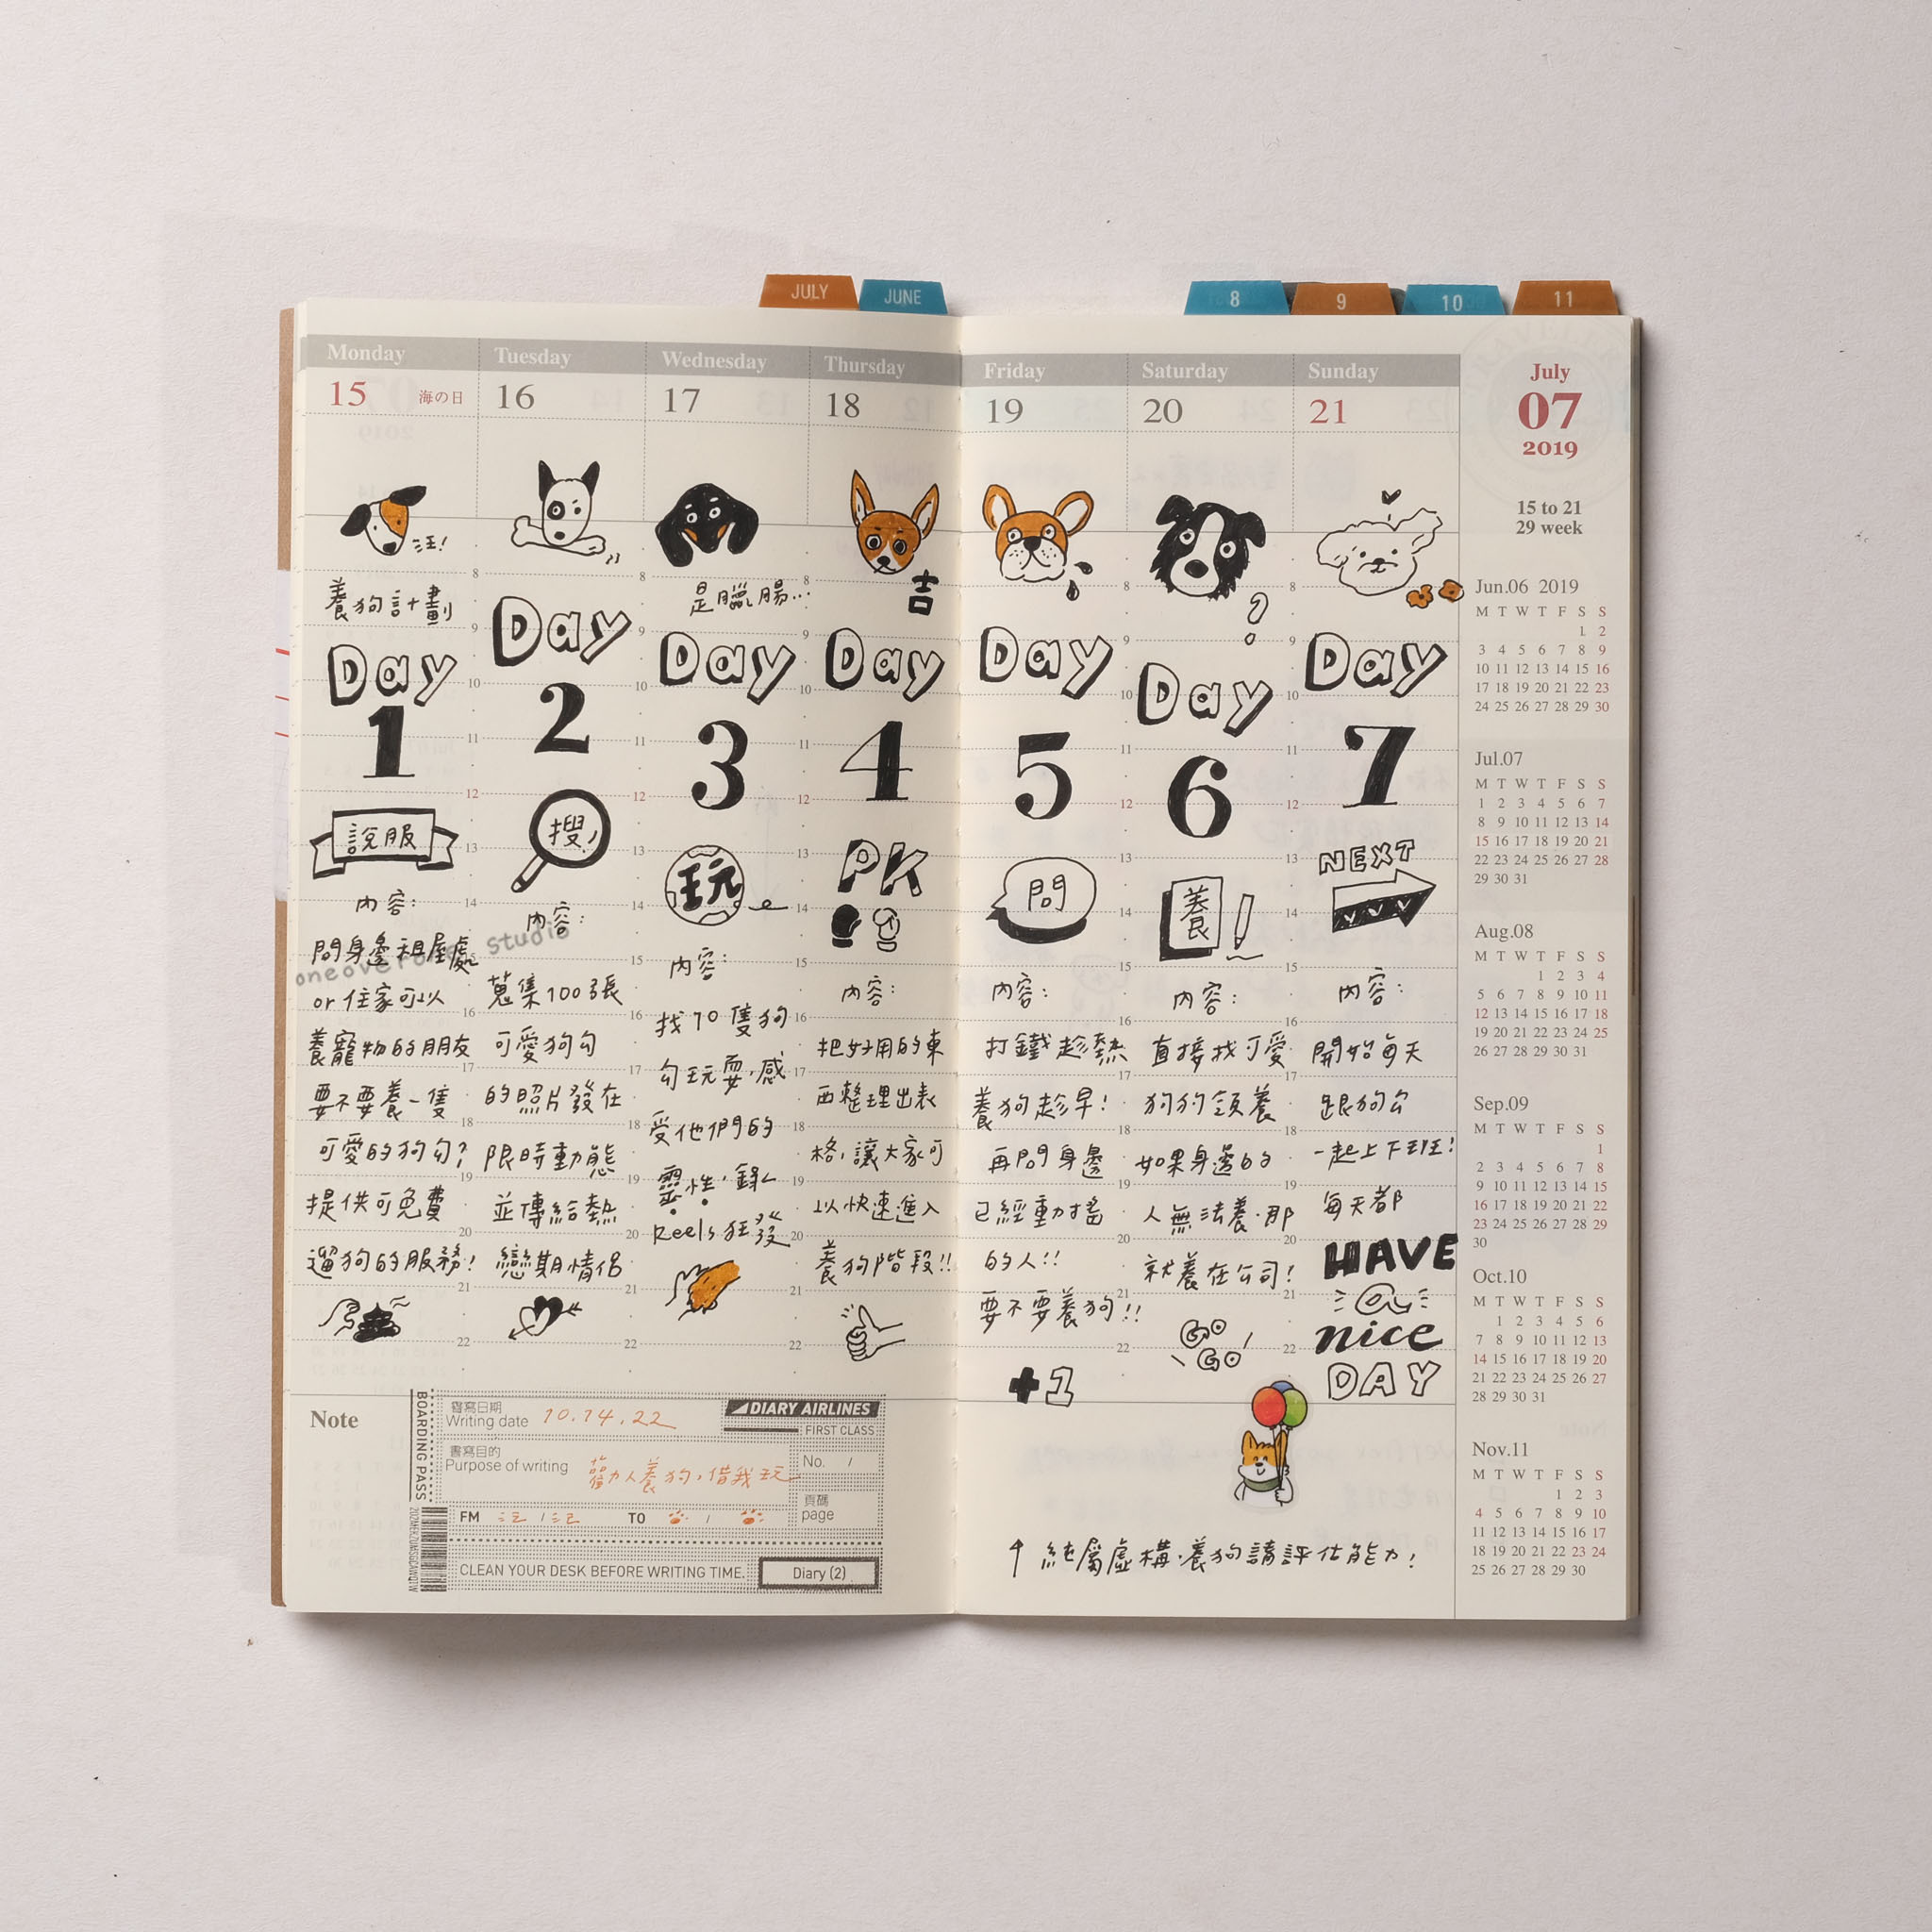 JULY
JUNE
8
9
10
11
Monday
15 海の日
汪!
養狗計劃
Day
1
說服
內容:
問身邊租屋處
or 住家可以
養寵物的朋友
要不要養一隻
可愛的狗勾?
提供可免費
遛狗的服務!
oneoverone studio
Tuesday
16
Day
2
搜!
內容:
蒐集100張
可愛狗勾
的照片發在
限時動態
並傳給熱
戀期情侶
Wednesday
17
是臘腸...
Day
3
玩
內容:
找10隻狗
勾玩耍,感
受他們的
靈性,錄
Reels狂發
Thursday
18
吉
Day
4
PK
內容:
把好用的東
西整理出表
格,讓大家可
以快速進入
養狗階段!!
Friday
19
Day
5
問
內容:
打鐵趁熱
養狗趁早!
再問身邊
已經動搖
的人!!
要不要養狗!!
+1
Saturday
20
?
Day
6
養
內容:
直接找可愛
狗狗領養
如果身邊的
人無法養,那
就養在公司!
GO
GO
Sunday
21
Day
7
NEXT
內容:
開始每天
跟狗勾
一起上下班!
每天都
HAVE
a
nice
DAY
8
9
10
11
12
13
14
15
16
17
18
19
20
21
22
Note
BOARDING PASS
書寫日期
Writing date 10.14.22
DIARY AIRLINES
FIRST CLASS
書寫目的
Purpose of writing 勸人養狗,借我玩
No. 1
頁碼
page
FM 汪 / 汪 TO /
CLEAN YOUR DESK BEFORE WRITING TIME.
Diary (2)
↑ 純屬虛構,養狗請評估能力!
July
07
2019
15 to 21
29 week
Jun.06 2019
M T W T F S S
1 2
3 4 5 6 7 8 9
10 11 12 13 14 15 16
17 18 19 20 21 22 23
24 25 26 27 28 29 30
Jul.07
M T W T F S S
1 2 3 4 5 6 7
8 9 10 11 12 13 14
15 16 17 18 19 20 21
22 23 24 25 26 27 28
29 30 31
Aug.08
M T W T F S S
1 2 3 4
5 6 7 8 9 10 11
12 13 14 15 16 17 18
19 20 21 22 23 24 25
26 27 28 29 30 31
Sep.09
M T W T F S S
1
2 3 4 5 6 7 8
9 10 11 12 13 14 15
16 17 18 19 20 21 22
23 24 25 26 27 28 29
30
Oct.10
M T W T F S S
1 2 3 4 5 6
7 8 9 10 11 12 13
14 15 16 17 18 19 20
21 22 23 24 25 26 27
28 29 30 31
Nov.11
M T W T F S S
1 2 3
4 5 6 7 8 9 10
11 12 13 14 15 16 17
18 19 20 21 22 23 24
25 26 27 28 29 30